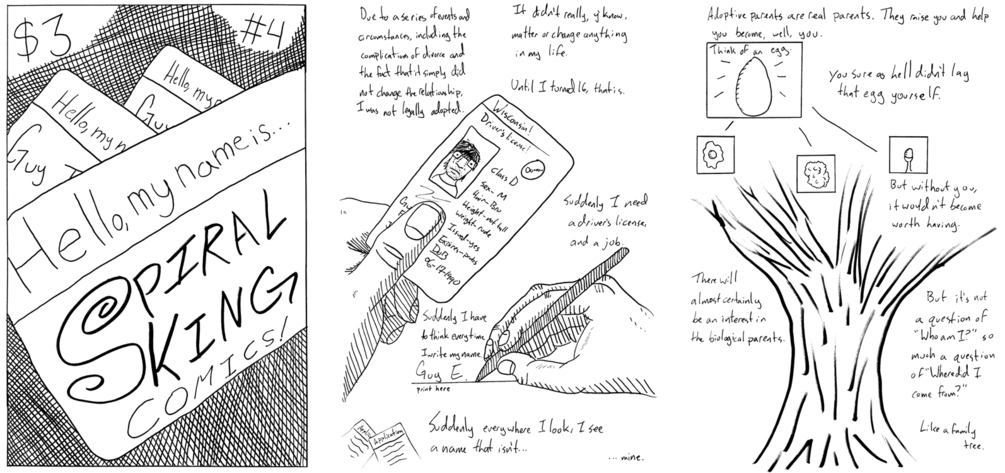 $3
#4
Hello, my n
Guy
Hello, my n
Guy
Hello, my name is...
SPIRAL
KING
COMICS!
Due to a series of events and
circumstances, including the
complication of divorce and
the fact that it simply did
not change the relationship,
I was not legally adopted.
It didn't really, y'know,
matter or change anything
in my life.
Until I turned 16, that is.
Wisconsin!
Driver's License!
Class D
Sex - M
Hair - Brn
Height - not tall
Weight - rude
Issued - yes
Expires - probs
DoB
06-17-1990
Suddenly I need
a driver's license,
and a job.
Suddenly I have
to think every time
I write my name
Guy E.
print here
Application
Suddenly everywhere I look, I see
a name that isn't...
...mine.
Adoptive parents are real parents. They raise you and help
you become, well, you.
Think of an egg.
You sure as hell didn't lay
that egg yourself.
But without you,
it wouldn't become
worth having.
There will
almost certainly
be an interest in
the biological parents.
But it's not
a question of
"Who am I?" so
much a question
of "Where did I
come from?"
Like a family
tree.